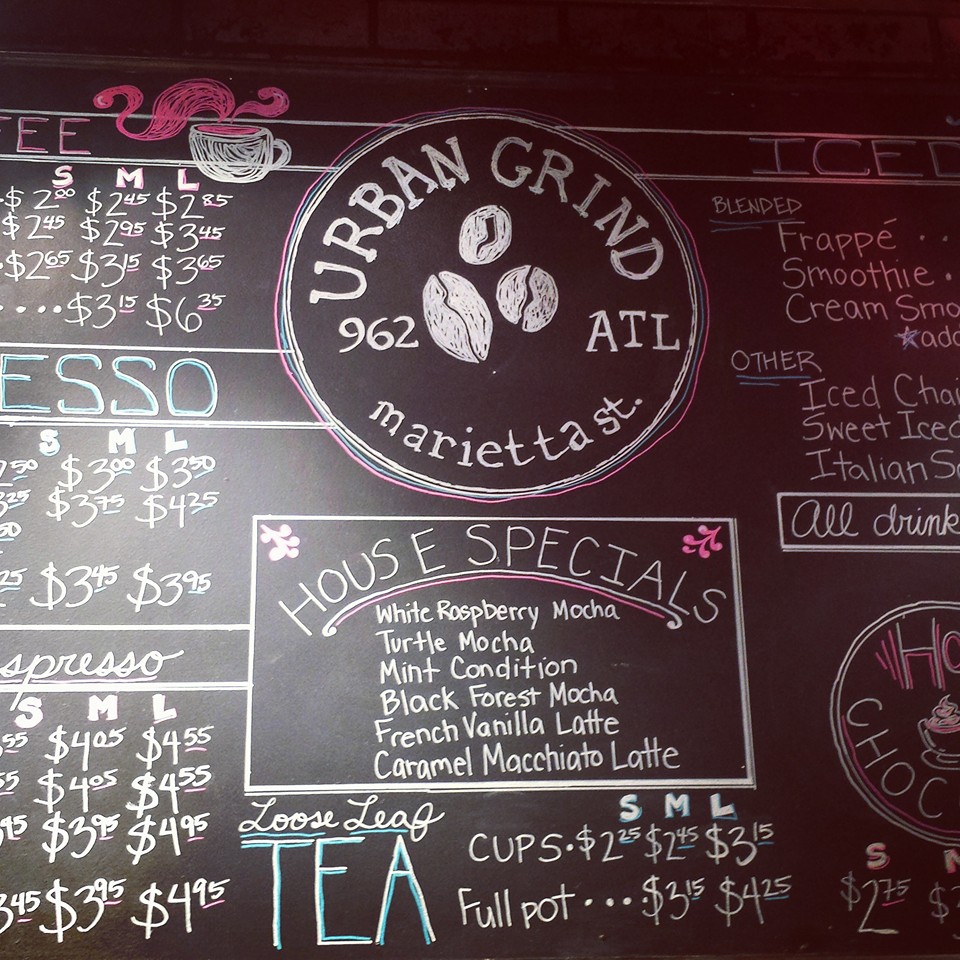 EE
S M L
$2.00 $2.45 $2.85
$2.45 $2.95 $3.45
$2.65 $3.15 $3.65
....$3.15 $6.35
ESSO
S M L
2.50 $3.00 $3.50
3.25 $3.75 $4.25
50
25 $3.45 $3.95
spresso
S M L
55 $4.05 $4.55
55 $4.05 $4.55
45 $3.95 $4.95
3.45 $3.95 $4.95
URBAN GRIND
962 ATL
marietta st.
HOUSE SPECIALS
White Raspberry Mocha
Turtle Mocha
Mint Condition
Black Forest Mocha
French Vanilla Latte
Caramel Macchiato Latte
Loose Leaf
TEA
S M L
CUPS.$2.25 $2.45 $3.15
Full pot....$3.15 $4.25
ICED
BLENDED
Frappé ..
Smoothie .
Cream Smo
add
OTHER
Iced Chai
Sweet Iced
Italian So
All drink
HO
CHOC
S
$2.75 $